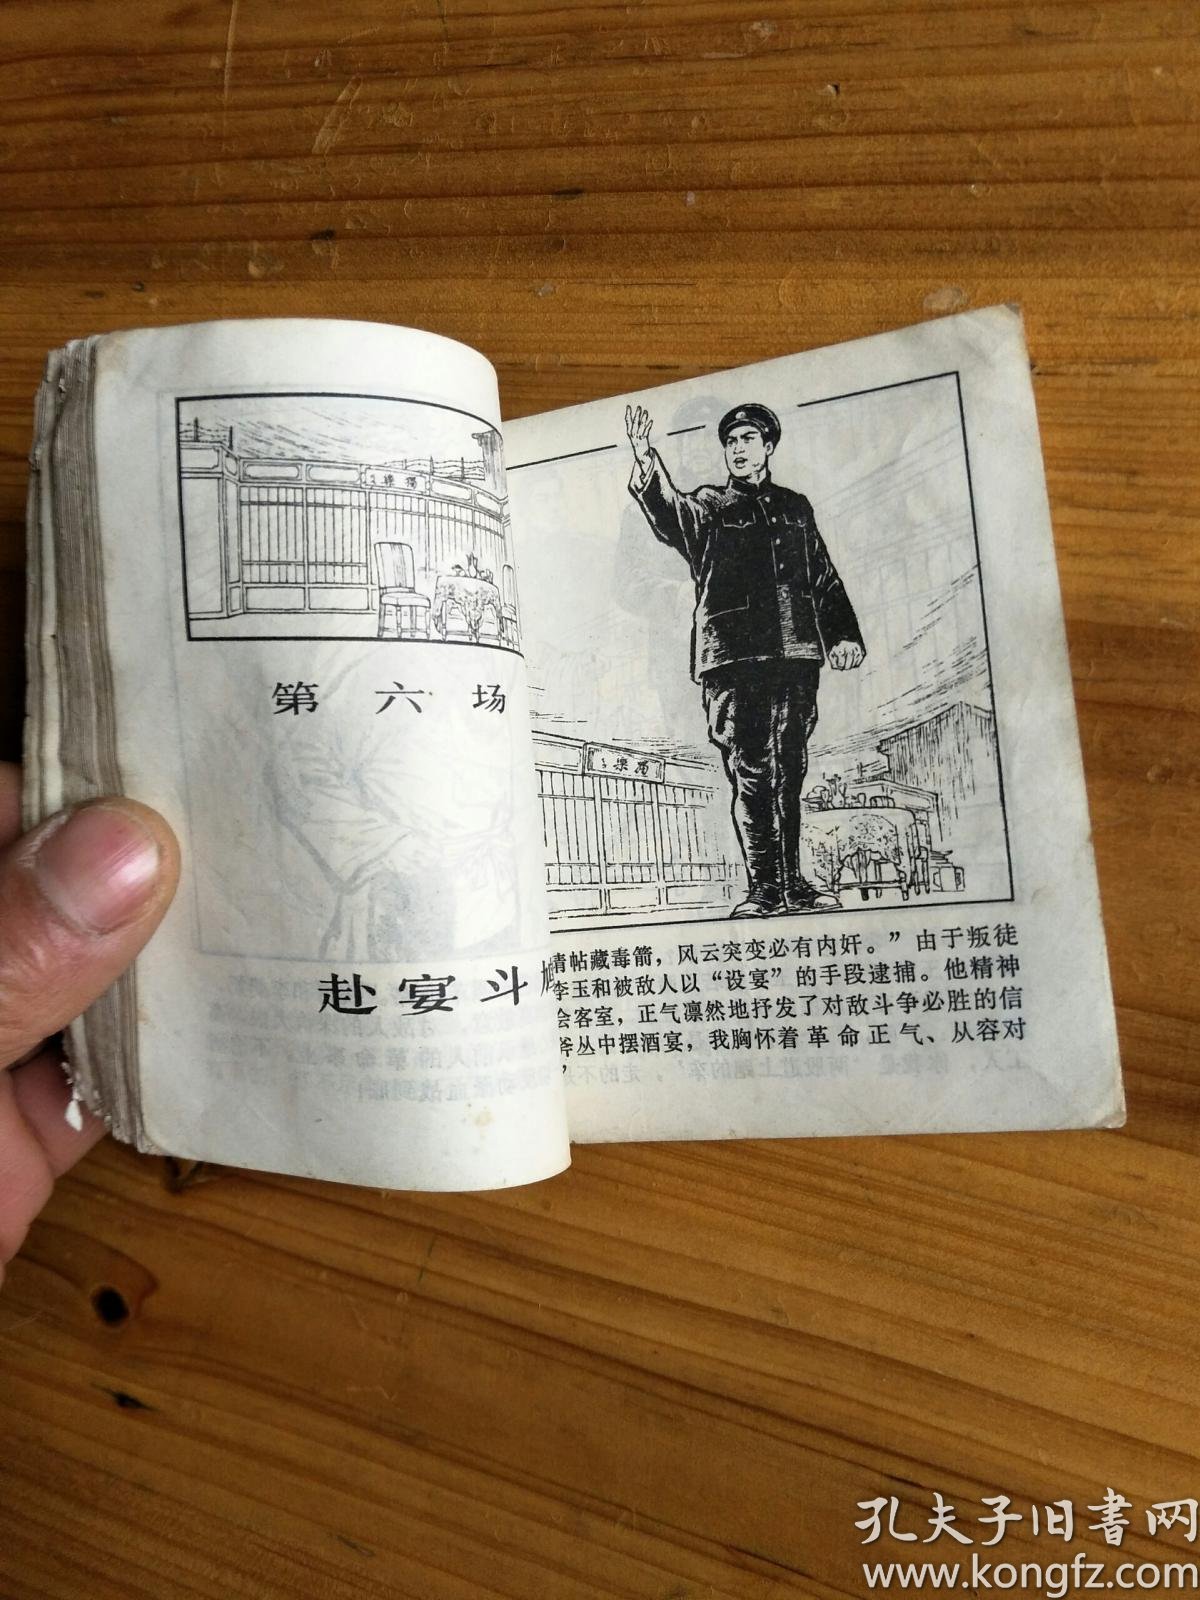 第六场
赴宴斗鸠
请帖藏毒箭，风云突变必有内奸。”由于叛徒
李玉和被敌人以“设宴”的手段逮捕。他精神
会客室，正气凛然地抒发了对敌斗争必胜的信
斧丛中摆酒宴，我胸怀着革命正气、从容对
”
孔夫子旧书网
www.kongfz.com